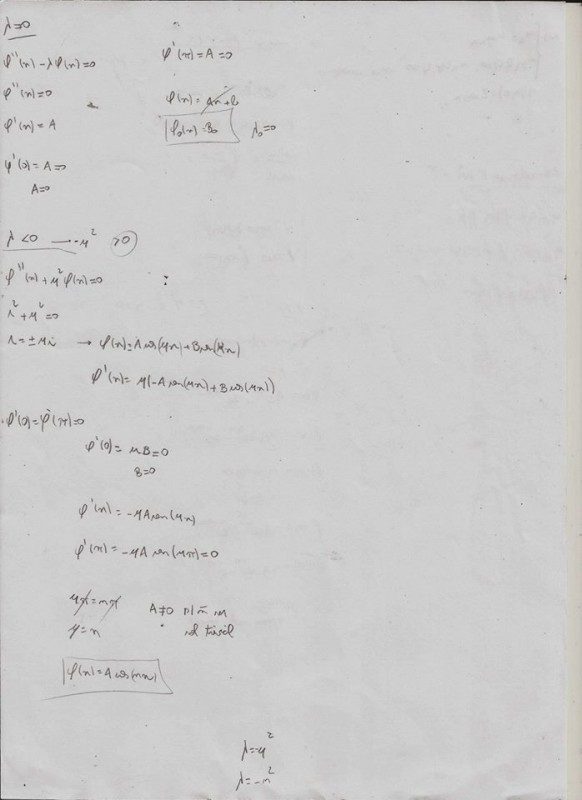 λ=0
φ''(x) - λφ(x) = 0
φ''(x) = 0
φ'(x) = A
φ'(0) = A = 0
A=0
φ'(π) = A = 0
φ(x) = Ax+b
φ₀(x) = B₀ λ₀=0
λ<0 → -μ² >0
φ''(x) + μ²φ(x) = 0
r² + μ² = 0
r = ±μi → φ(x) = A cos(μx) + B sen(μx)
φ'(x) = μ(-A sen(μx) + B cos(μx))
φ'(0) = φ'(π) = 0
φ'(0) = μB = 0
B=0
φ'(x) = -μA sen(μx)
φ'(π) = -μA sen(μπ) = 0
μπ = nπ A≠0 p/ ñ ser
μ = n sol trivial
φ(x) = A cos(nx)
λ=-μ²
λ=-n²